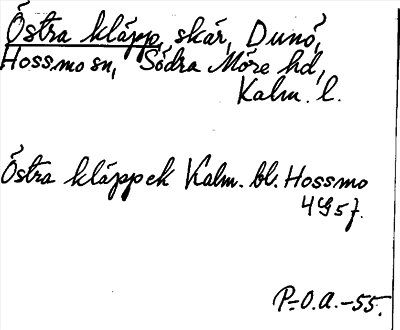 Östra kläpp, skär, Dunö,
Hossmo sn, Södra Möre hd,
Kalm. l.
Östra kläpp ek Kalm. bl. Hossmo
4G57.
P-O.A.-55.